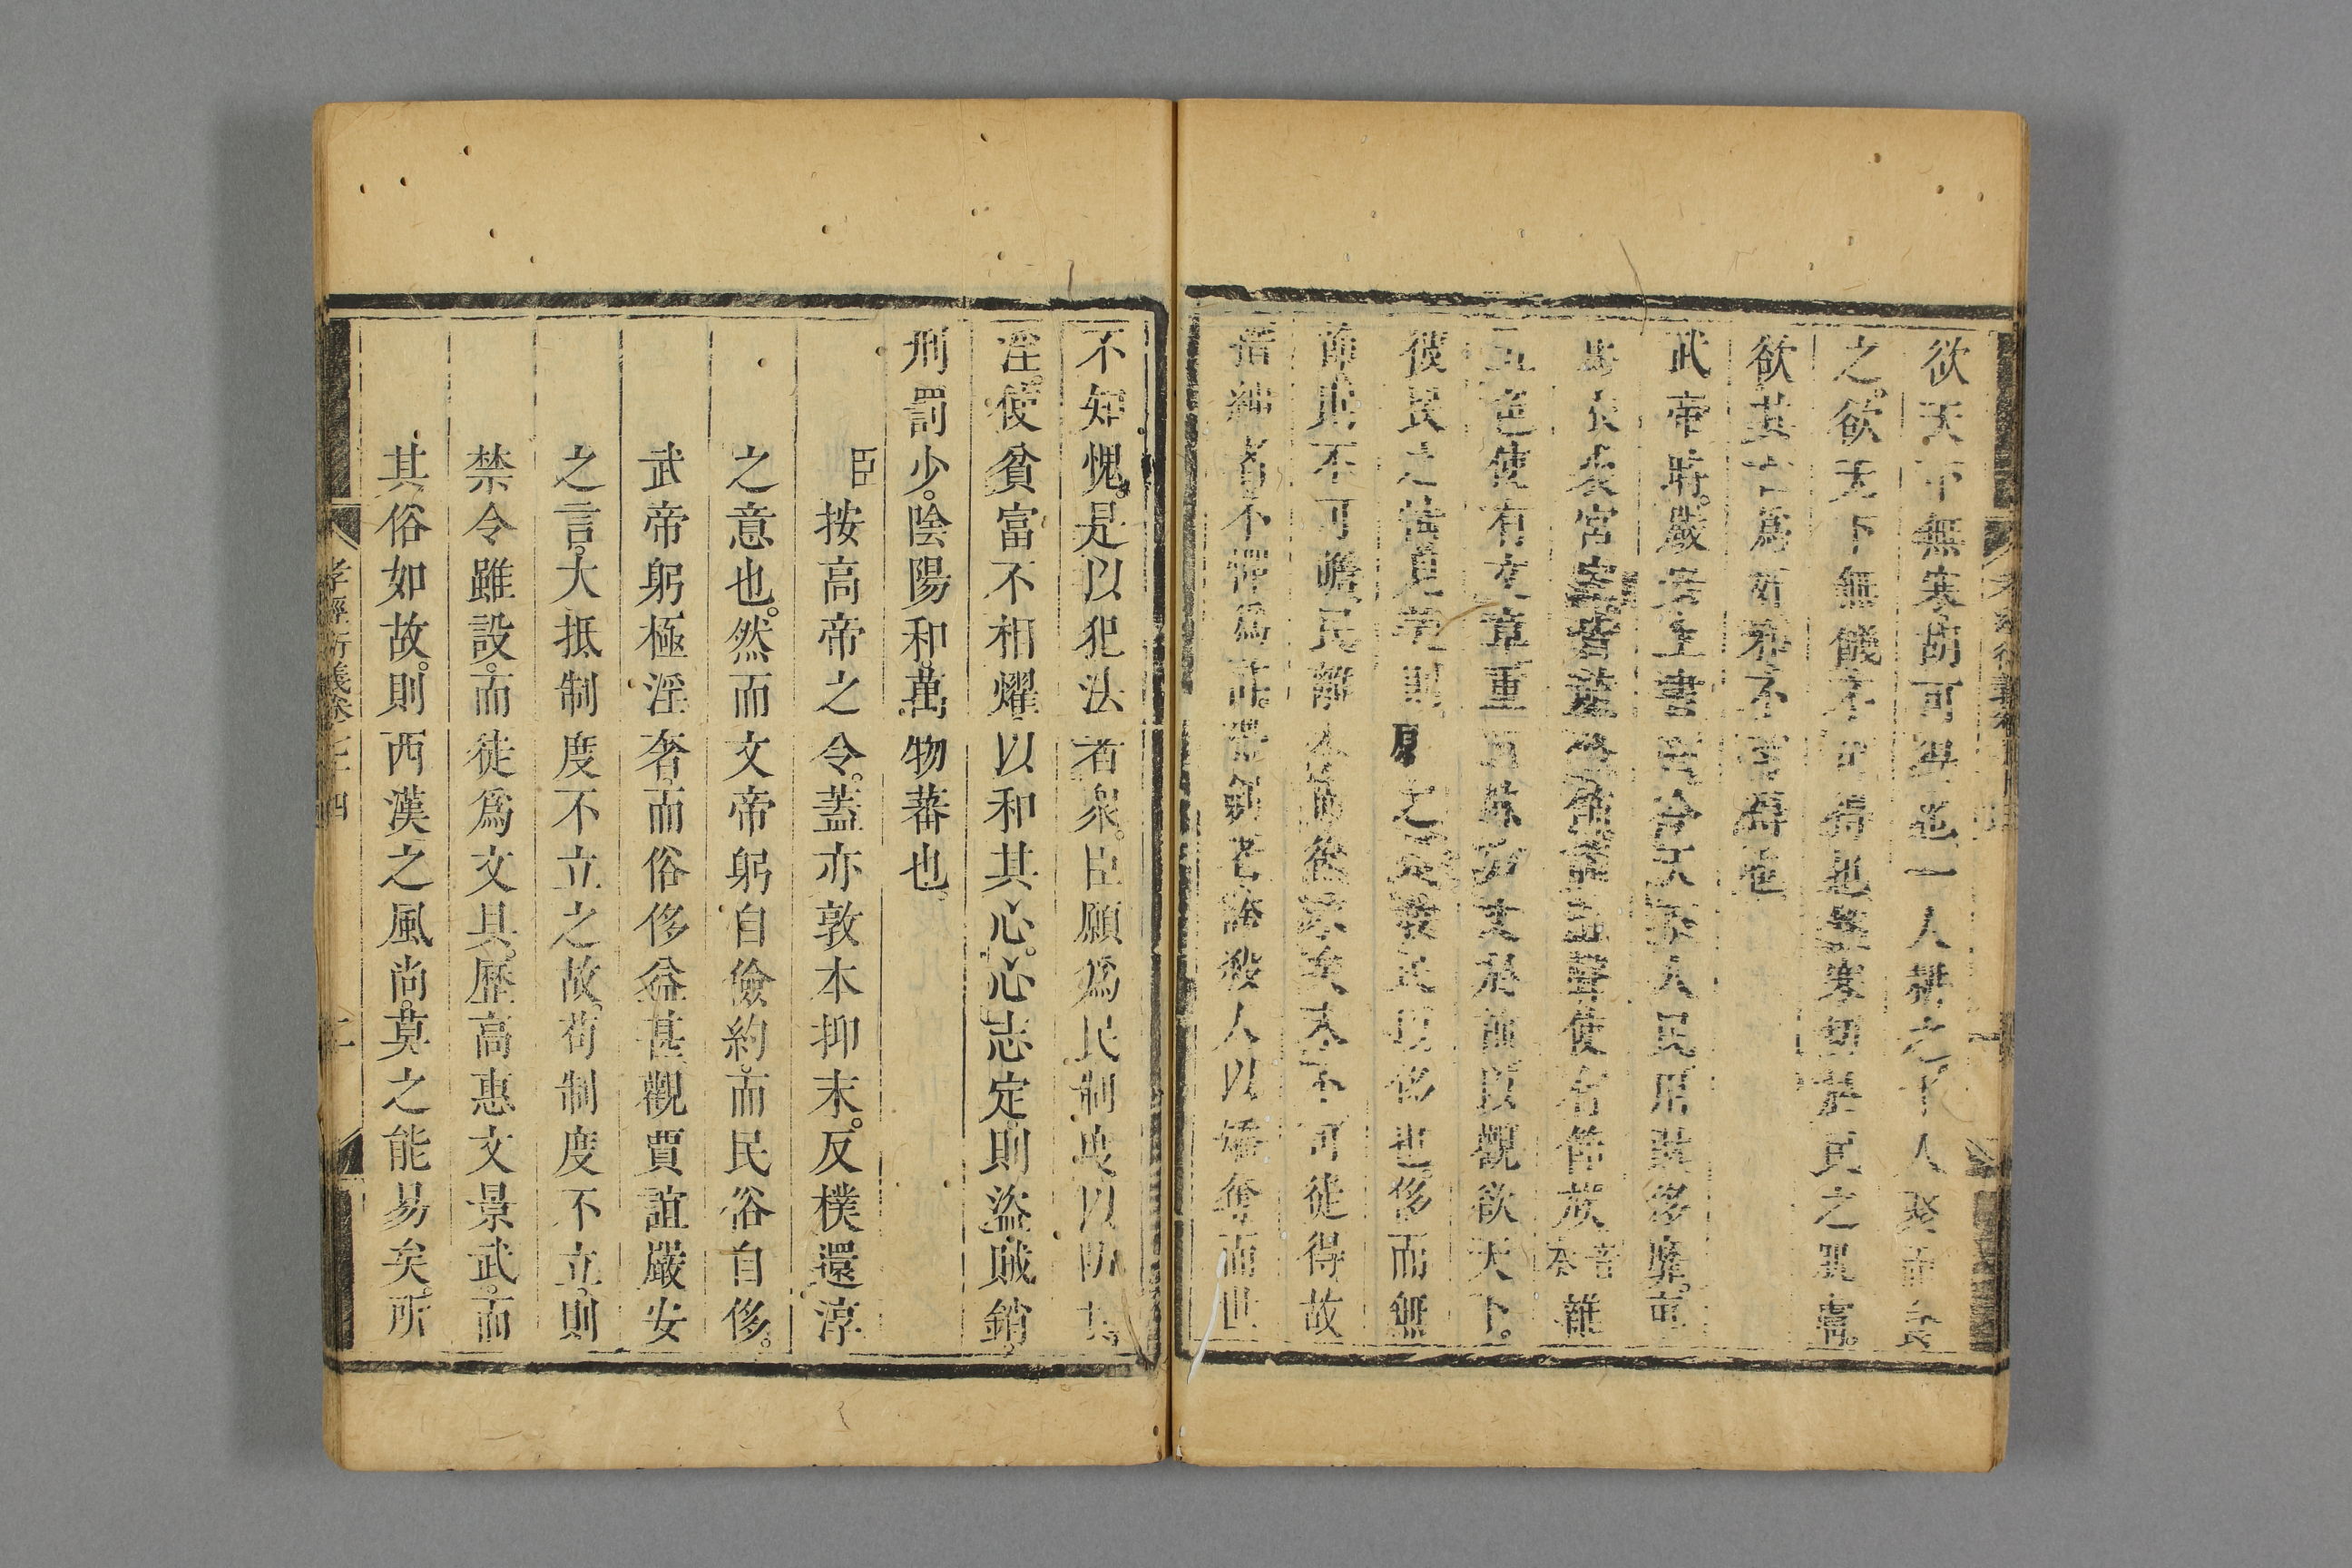 欲天下無寒胡可得也一人耕之十人聚而食
之。欲天下無饑不可得也饑寒切於民之肌膚。
欲其亡爲姦邪不可得也
武帝時。嚴安上書曰今天下人民用財侈靡。車
馬衣裘宮室皆競修飾調五聲使有節族音奏雜
五色使有文章重五味方丈於前以觀欲天下。
彼民之情見美則願之是教民以侈也侈而無
節則不可贍民離本而徼末矣末不可徒得故
搢紳者不憚爲詐。帶劍者夸殺人以矯奪而世
不知愧。是以犯法者衆。臣願爲民制度以防其
淫。使貧富不相燿以和其心。心志定則盜賊銷。
刑罰少。陰陽和。萬物蕃也。
臣按高帝之令。蓋亦敦本抑末。反樸還淳
之意也。然而文帝躬自儉約。而民俗自侈。
武帝躬極淫奢。而俗侈益甚觀賈誼嚴安
之言。大抵制度不立之故。苟制度不立。則
禁令雖設。而徒爲文具。歷高惠文景武。而
其俗如故。則西漢之風尚。莫之能易矣。所
孝經衍義卷